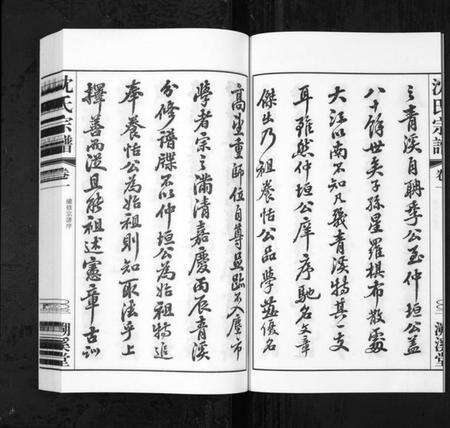 沈氏宗譜
卷一
之青溪自聃季公至仲垣公蓋
八十餘世矣子孫星羅棋布散處
大江以南不知凡幾青溪特其一支
耳雖然仲垣公庠序馳名文章
傑出乃祖養恬公品學兼優名
湖溪堂
高望重師位自尊且臨不入塵市
學者宗之滿清嘉慶丙辰青溪
分修譜牒不以仲垣公為始祖特追
奉養恬公為始祖則知取法乎上
擇善而從且能祖述憲章古訓
沈氏宗譜
卷一
續修宗譜序
湖溪堂